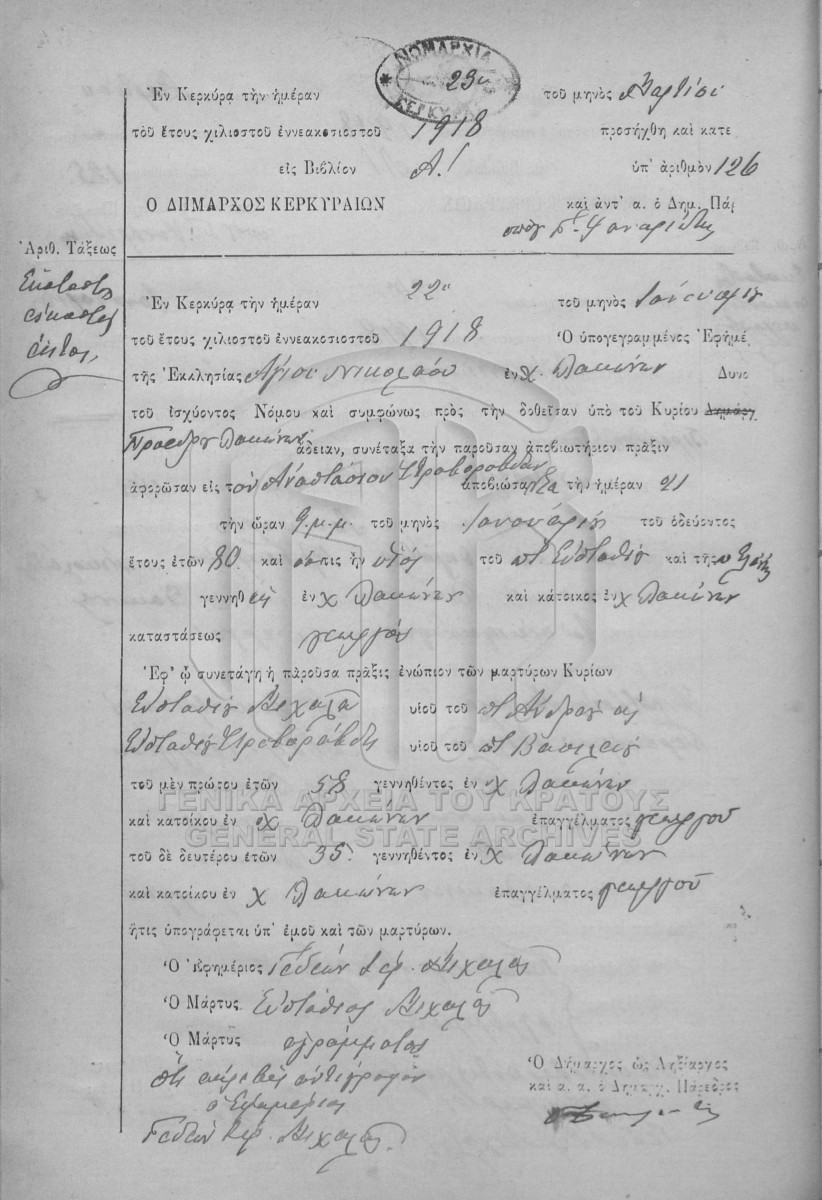 ΝΟΜΑΡΧΙΑ
ΚΕΡΚΥΡΑΣ
Ἐν Κερκύρᾳ τὴν ἡμέραν 23η τοῦ μηνὸς Μαρτίου
τοῦ ἔτους χιλιοστοῦ ἐννεακοσιοστοῦ 1918 προσήχθη καὶ κατε
εἰς Βιβλίον Α! ὑπ' ἀριθμὸν 126
Ο ΔΗΜΑΡΧΟΣ ΚΕΡΚΥΡΑΙΩΝ καὶ ἀντ' α. ὁ Δημ. Πάρ
Ἀριθ. Τάξεως
Ἑκατοστὸς
εἰκοστὸς
ἕκτος
Ἐν Κερκύρᾳ τὴν ἡμέραν 22α τοῦ μηνὸς Ἰανουαρίου
τοῦ ἔτους χιλιοστοῦ ἐννεακοσιοστοῦ 1918 Ὁ ὑπογεγραμμένος Ἐφημέ
τῆς Ἐκκλησίας Ἁγίου Νικολάου ἐν χ. Λακώνων Δυνα
τοῦ ἰσχύοντος Νόμου καὶ συμφώνως πρὸς τὴν δοθεῖσαν ὑπὸ τοῦ Κυρίου Δημάρχ
Προέδρου Λακώνων ἄδειαν, συνέταξα τὴν παροῦσαν ἀποβιωτήριον πρᾶξιν
ἀφορῶσαν εἰς τὸν Ἀναστάσιον ἀποβιώσαντα τὴν ἡμέραν 21
τὴν ὥραν 9 μ.μ. τοῦ μηνὸς Ἰανουαρίου τοῦ ὁδεύοντος
ἔτους ἐτῶν 80 καὶ ὅστις ἦν υἱὸς τοῦ πτ Εὐσταθίου καὶ τῆς π Ἑλένης
γεννηθεὶς ἐν χ Λακώνων καὶ κάτοικος ἐν χ Λακώνων
καταστάσεως γεωργός
Ἐφ' ᾧ συνετάγη ἡ παροῦσα πρᾶξις ἐνώπιον τῶν μαρτύρων Κυρίων
Εὐσταθίου Μιχαλᾶ υἱοῦ τοῦ πτ Ἀνδρέου ὡς
Εὐσταθίου υἱοῦ τοῦ πτ Βασιλείου
τοῦ μὲν πρώτου ἐτῶν 58 γεννηθέντος ἐν χ Λακώνων
καὶ κατοίκου ἐν χ Λακώνων ἐπαγγέλματος γεωργοῦ
ΓΕΝΙΚΑ ΑΡΧΕΙΑ ΤΟΥ ΚΡΑΤΟΥΣ
GENERAL STATE ARCHIVES
τοῦ δὲ δευτέρου ἐτῶν 35 γεννηθέντος ἐν χ Λακώνων
καὶ κατοίκου ἐν χ Λακώνων ἐπαγγέλματος γεωργοῦ
ἥτις ὑπογράφεται ὑπ' ἐμοῦ καὶ τῶν μαρτύρων.
Ὁ Ἐφημέριος Γεδεὼν Ἱερ. Μιχαλᾶς
Ὁ Μάρτυς Εὐστάθιος Μιχαλᾶς
Ὁ Μάρτυς ἀγράμματος
Ὅτι ἀκριβὲς ἀντίγραφον
ὁ Ἐφημέριος
Γεδεὼν Ἱερ. Μιχαλᾶς
Ὁ Δήμαρχος ὡς Ληξίαρχος
καὶ α. α. ὁ Δημαρχ. Πάρεδρος